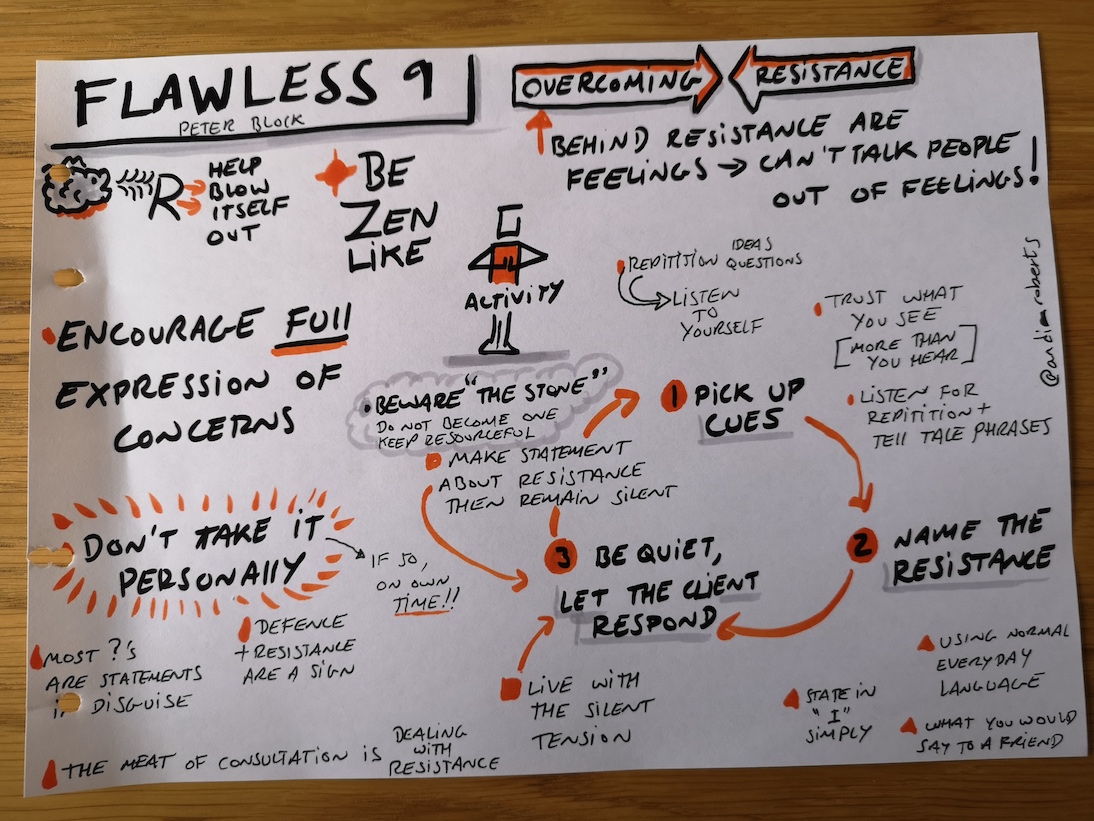 FLAWLESS 9
PETER BLOCK
OVERCOMING
RESISTANCE
BEHIND RESISTANCE ARE
FEELINGS → CAN'T TALK PEOPLE
OUT OF FEELINGS!
R
HELP
BLOW
ITSELF
OUT
BE
ZEN
LIKE
ACTIVITY
ENCOURAGE FULL
EXPRESSION OF
CONCERNS
REPITITION IDEAS
QUESTIONS
LISTEN
TO
YOURSELF
TRUST WHAT
YOU SEE
[MORE THAN
YOU HEAR]
LISTEN FOR
REPITITION +
TELL TALE PHRASES
@andiroberts
BEWARE "THE STONE"
DO NOT BECOME ONE
KEEP RESOURCEFUL
MAKE STATEMENT
ABOUT RESISTANCE
THEN REMAIN SILENT
1 PICK UP
CUES
2 NAME THE
RESISTANCE
3 BE QUIET,
LET THE CLIENT
RESPOND
DON'T TAKE IT
PERSONALLY
IF SO,
ON OWN
TIME!!
MOST ?'s
ARE STATEMENTS
IN DISGUISE
DEFENCE
+ RESISTANCE
ARE A SIGN
LIVE WITH
THE SILENT
TENSION
STATE IN
"I"
SIMPLY
USING NORMAL
EVERYDAY
LANGUAGE
WHAT YOU WOULD
SAY TO A FRIEND
THE MEAT OF CONSULTATION IS DEALING
WITH
RESISTANCE